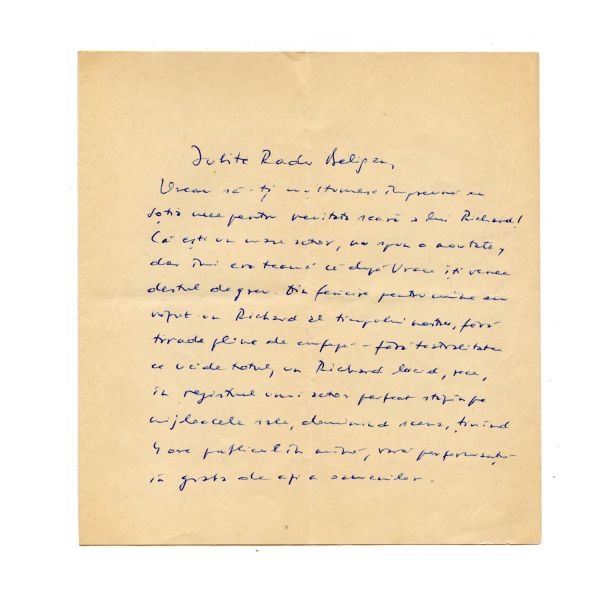 Iubite Radu Beligan,
Vreau să-ți mulțumesc împreună cu
soția mea pentru seară a lui Richard!
Că ești un mare actor, nu spun o noutate,
dar îmi era teamă că după Vraca îți venea
destul de greu. Din fericire pentru mine am
văzut un Richard al timpului nostru, fără
tirade pline de emfază – fără teatralitatea
ce ucide totul, un Richard lucid, rece,
în registrul unui actor perfect stăpîn pe
mijloacele sale, dominînd scena, ținînd
4 ore publicul în mînă, rară performanță
în graba de azi a oamenilor.